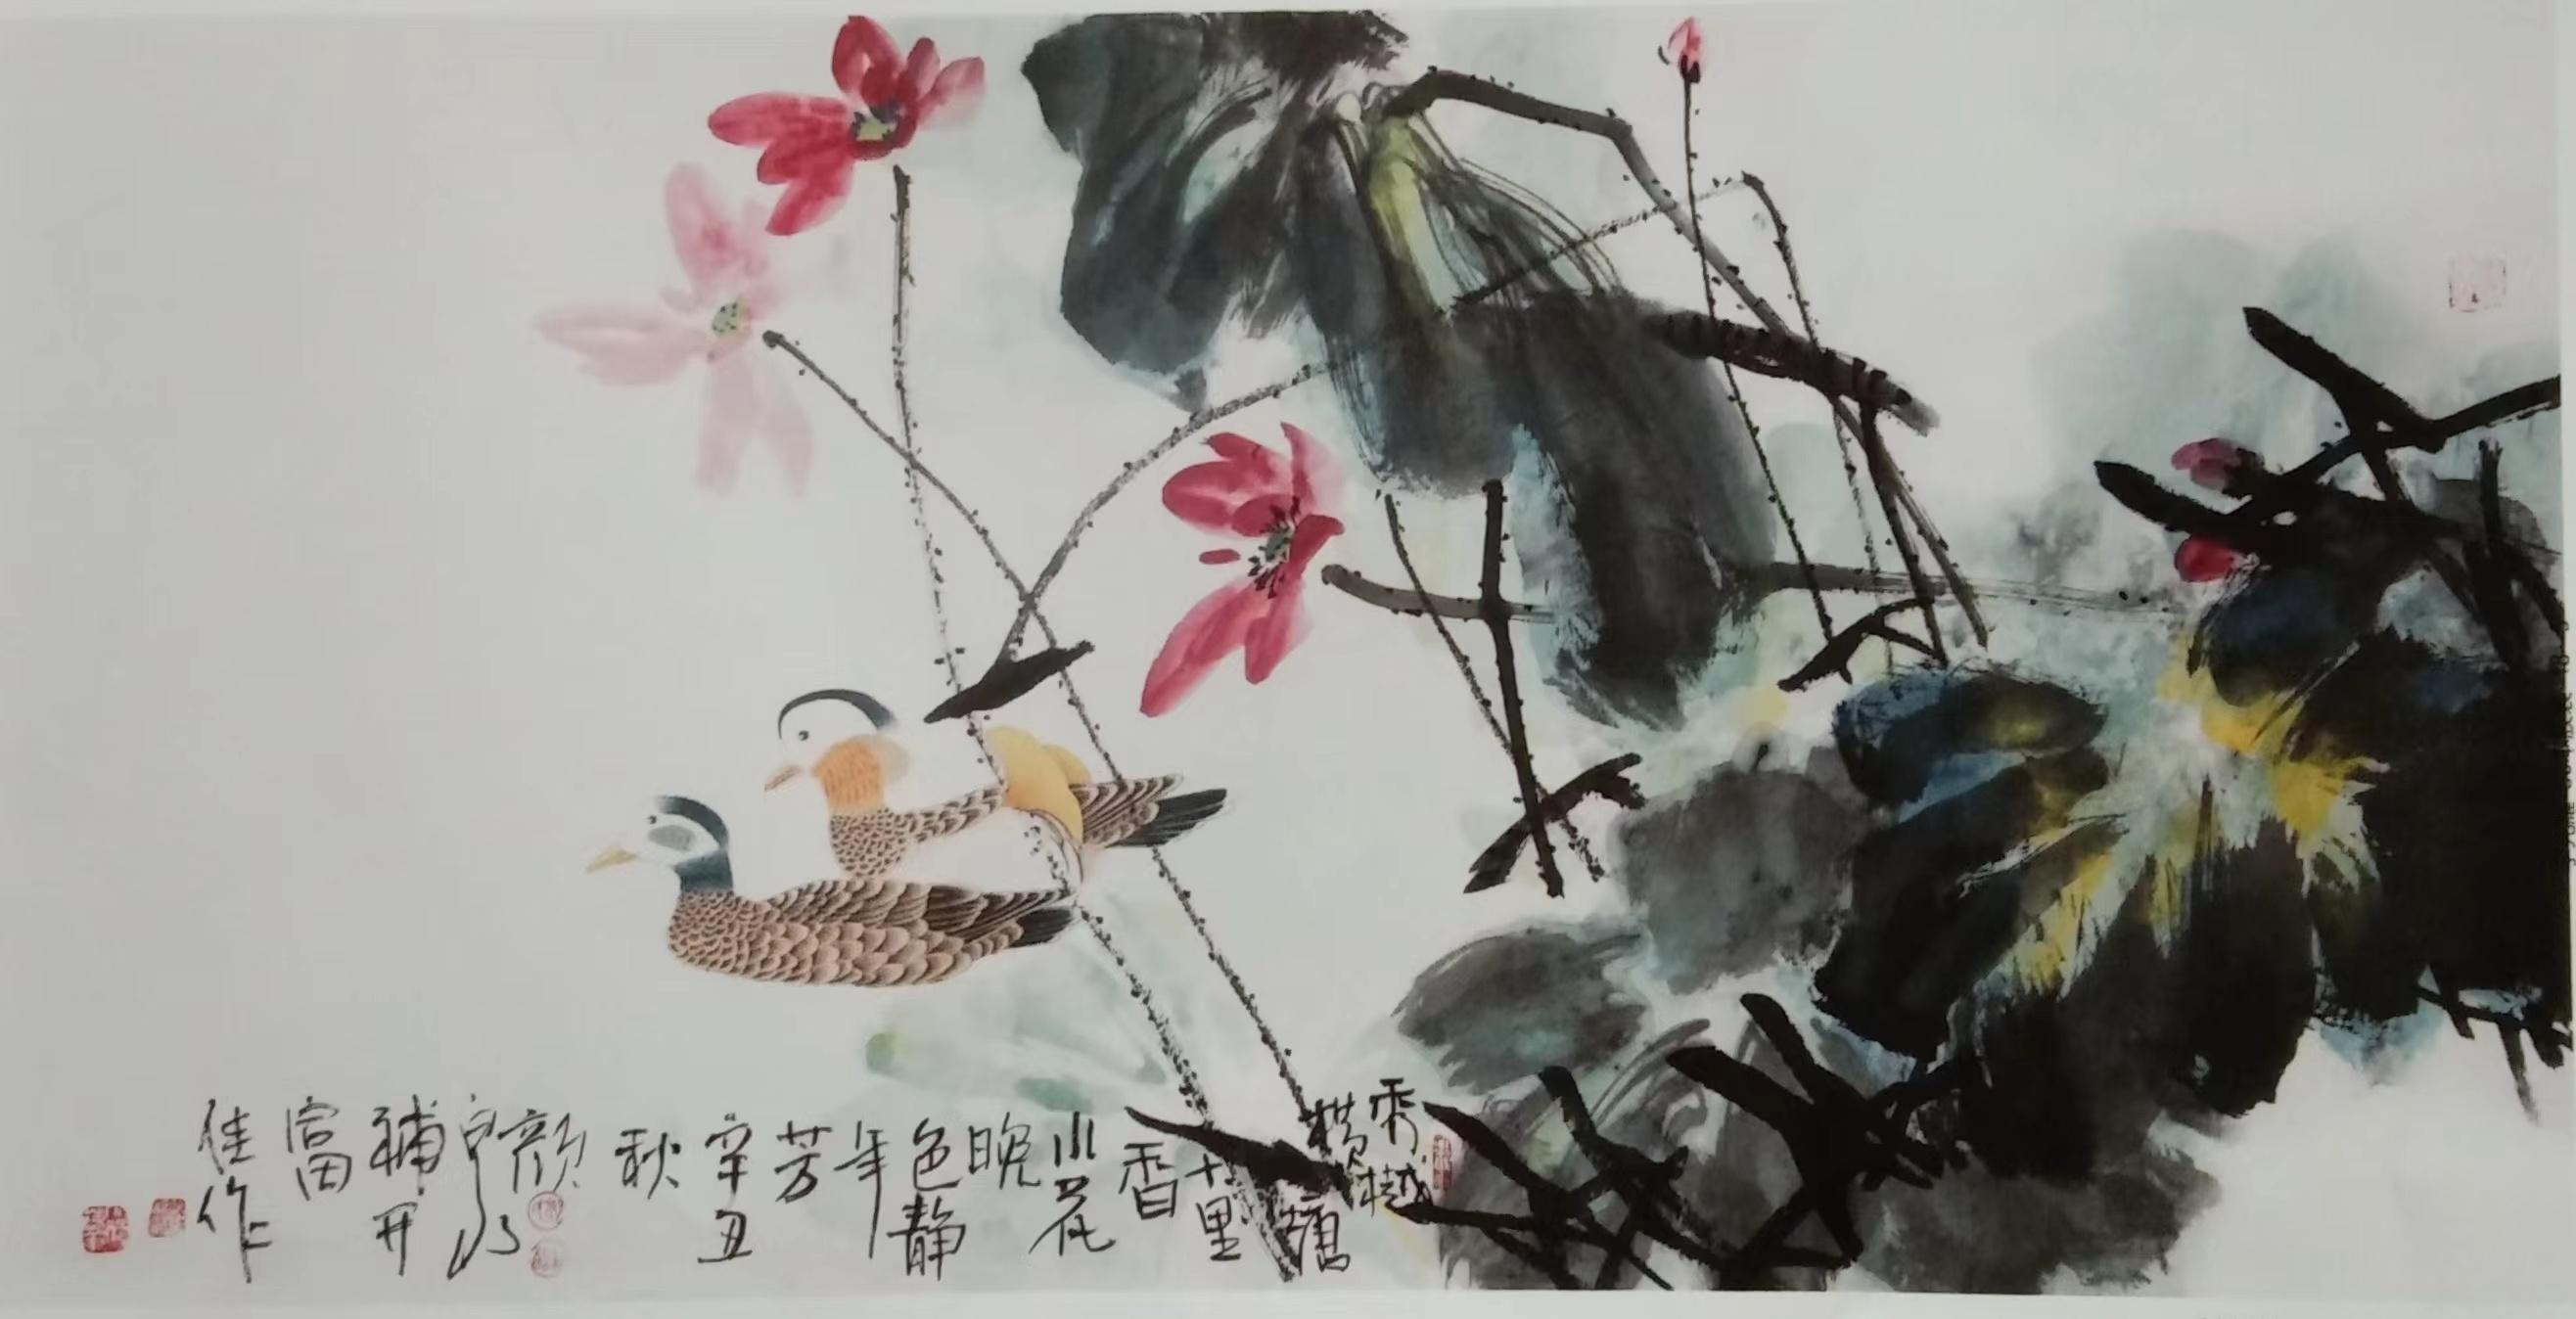 秀樾
横塘
十里
香
水花
晚
色静
年
芳
辛丑
秋
颜
補开
富
佳作